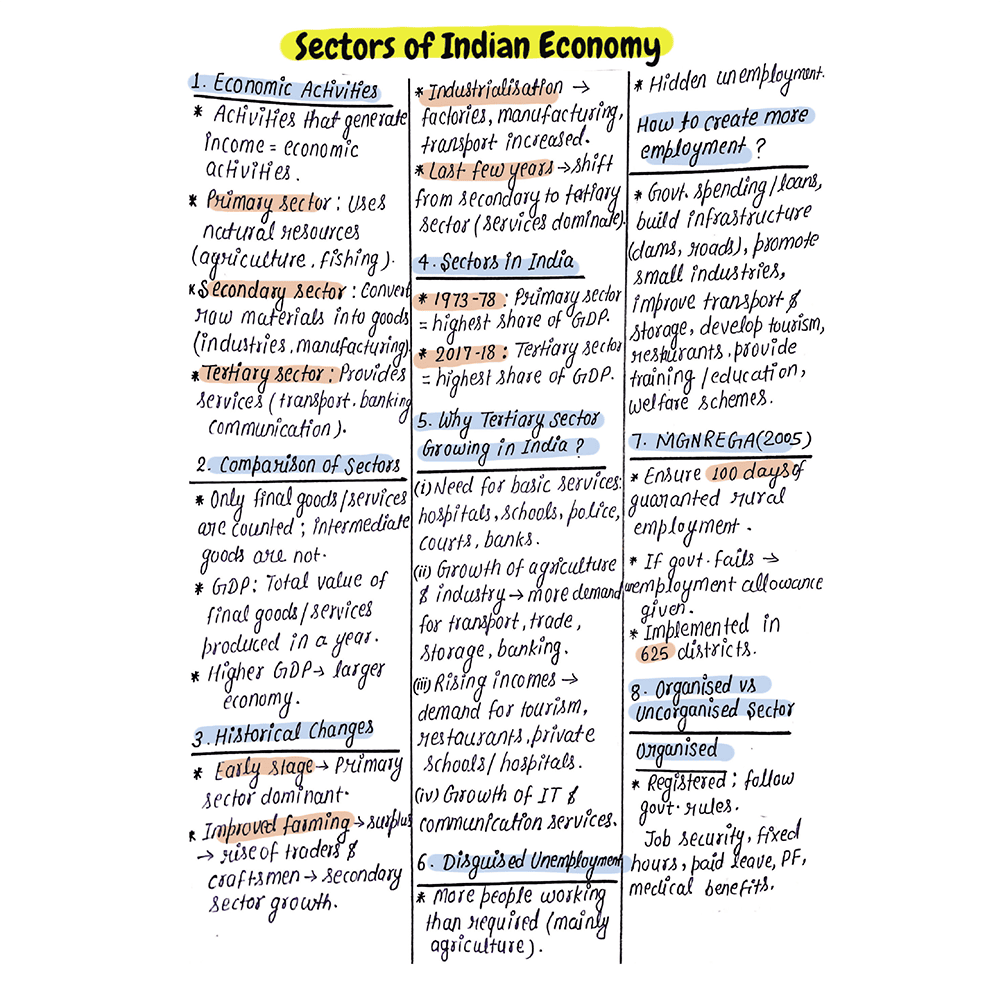 Sectors of Indian Economy
1. Economic Activities
* Activities that generate
income = economic
activities.
* Primary sector : Uses
natural resources
(agriculture, fishing).
* Secondary sector : Convert
raw materials into goods
(industries, manufacturing)
* Tertiary sector : Provides
services (transport, banking
communication).
2. Comparison of Sectors
* Only final goods/services
are counted ; intermediate
goods are not.
* GDP : Total value of
final goods/services
produced in a year.
* Higher GDP → larger
economy.
3. Historical Changes
* Early stage → Primary
sector dominant.
* Improved farming → surplus
→ rise of traders &
craftsmen → secondary
sector growth.
* Industrialisation →
factories, manufacturing,
transport increased.
* Last few years → shift
from secondary to tertiary
sector (services dominate).
4. Sectors in India
* 1973-78 : Primary sector
= highest share of GDP.
* 2017-18 : Tertiary sector
= highest share of GDP.
5. Why Tertiary Sector
Growing in India ?
(i) Need for basic services:
hospitals, schools, police,
courts, banks.
(ii) Growth of agriculture
& industry → more demand
for transport, trade,
storage, banking.
(iii) Rising incomes →
demand for tourism,
restaurants, private
schools/hospitals.
(iv) Growth of IT &
communication services.
6. Disguised Unemployment
* More people working
than required (mainly
agriculture).
* Hidden unemployment.
How to create more
employment ?
* Govt. spending/loans,
build infrastructure
(dams, roads), promote
small industries,
improve transport &
storage, develop tourism,
resturants, provide
training / education,
welfare schemes.
7. MGNREGA(2005)
* Ensure 100 days of
guaranted rural
employment.
* If govt. fails →
unemployment allowance
given.
* Implemented in
625 districts.
8. Organised vs
Uncorganised Sector
Organised
* Registered ; follow
govt. rules.
Job security, fixed
hours, paid leave, PF,
medical benefits.